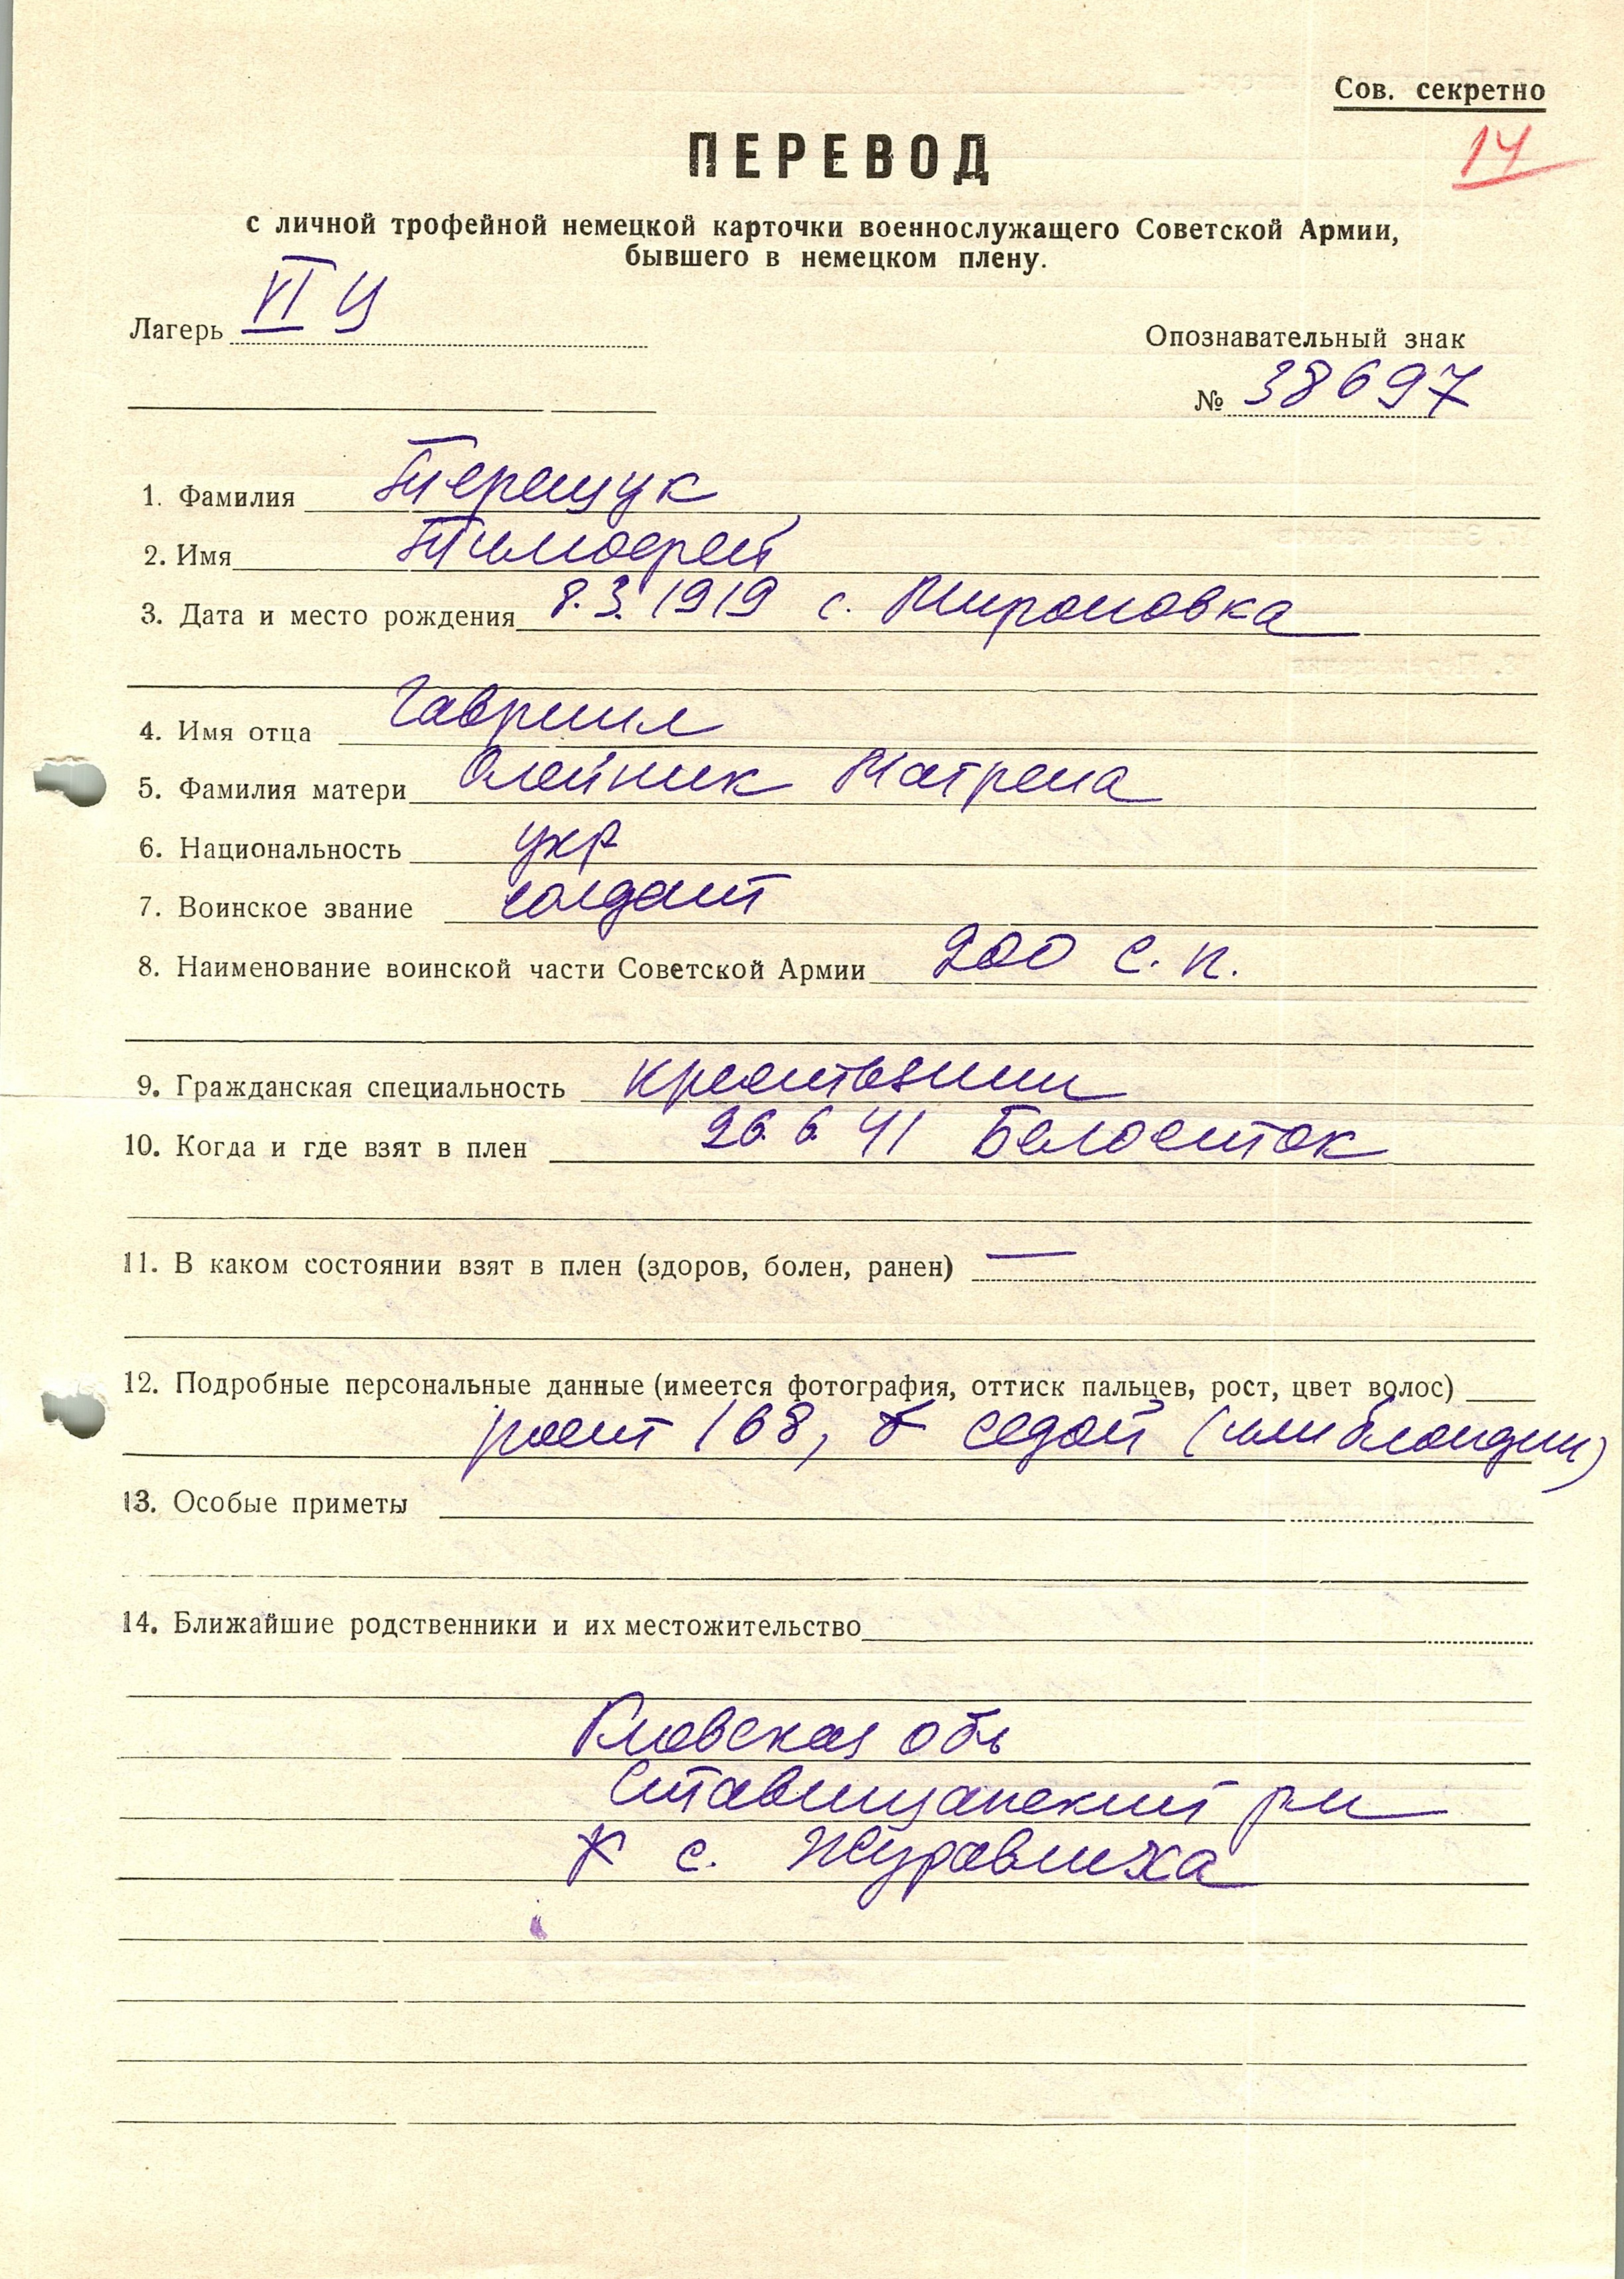 Сов. секретно
14
ПЕРЕВОД
с личной трофейной немецкой карточки военнослужащего Советской Армии,
бывшего в немецком плену.
Лагерь VI Ц
Опознавательный знак
№ 38697
1. Фамилия Терещук
2. Имя Тимофей
3. Дата и место рождения 8.3.1919 с. Мироновка
4. Имя отца Гавриил
5. Фамилия матери Олейник Матрена
6. Национальность укр
7. Воинское звание солдат
8. Наименование воинской части Советской Армии 200 с. п.
9. Гражданская специальность крестьянин
10. Когда и где взят в плен 26.6.41 Белосток
11. В каком состоянии взят в плен (здоров, болен, ранен) —
12. Подробные персональные данные (имеется фотография, оттиск пальцев, рост, цвет волос)
рост 168, седой (или блондин)
13. Особые приметы
14. Ближайшие родственники и их местожительство
Киевская обл
Ставищанский р-н
с. Журавлиха